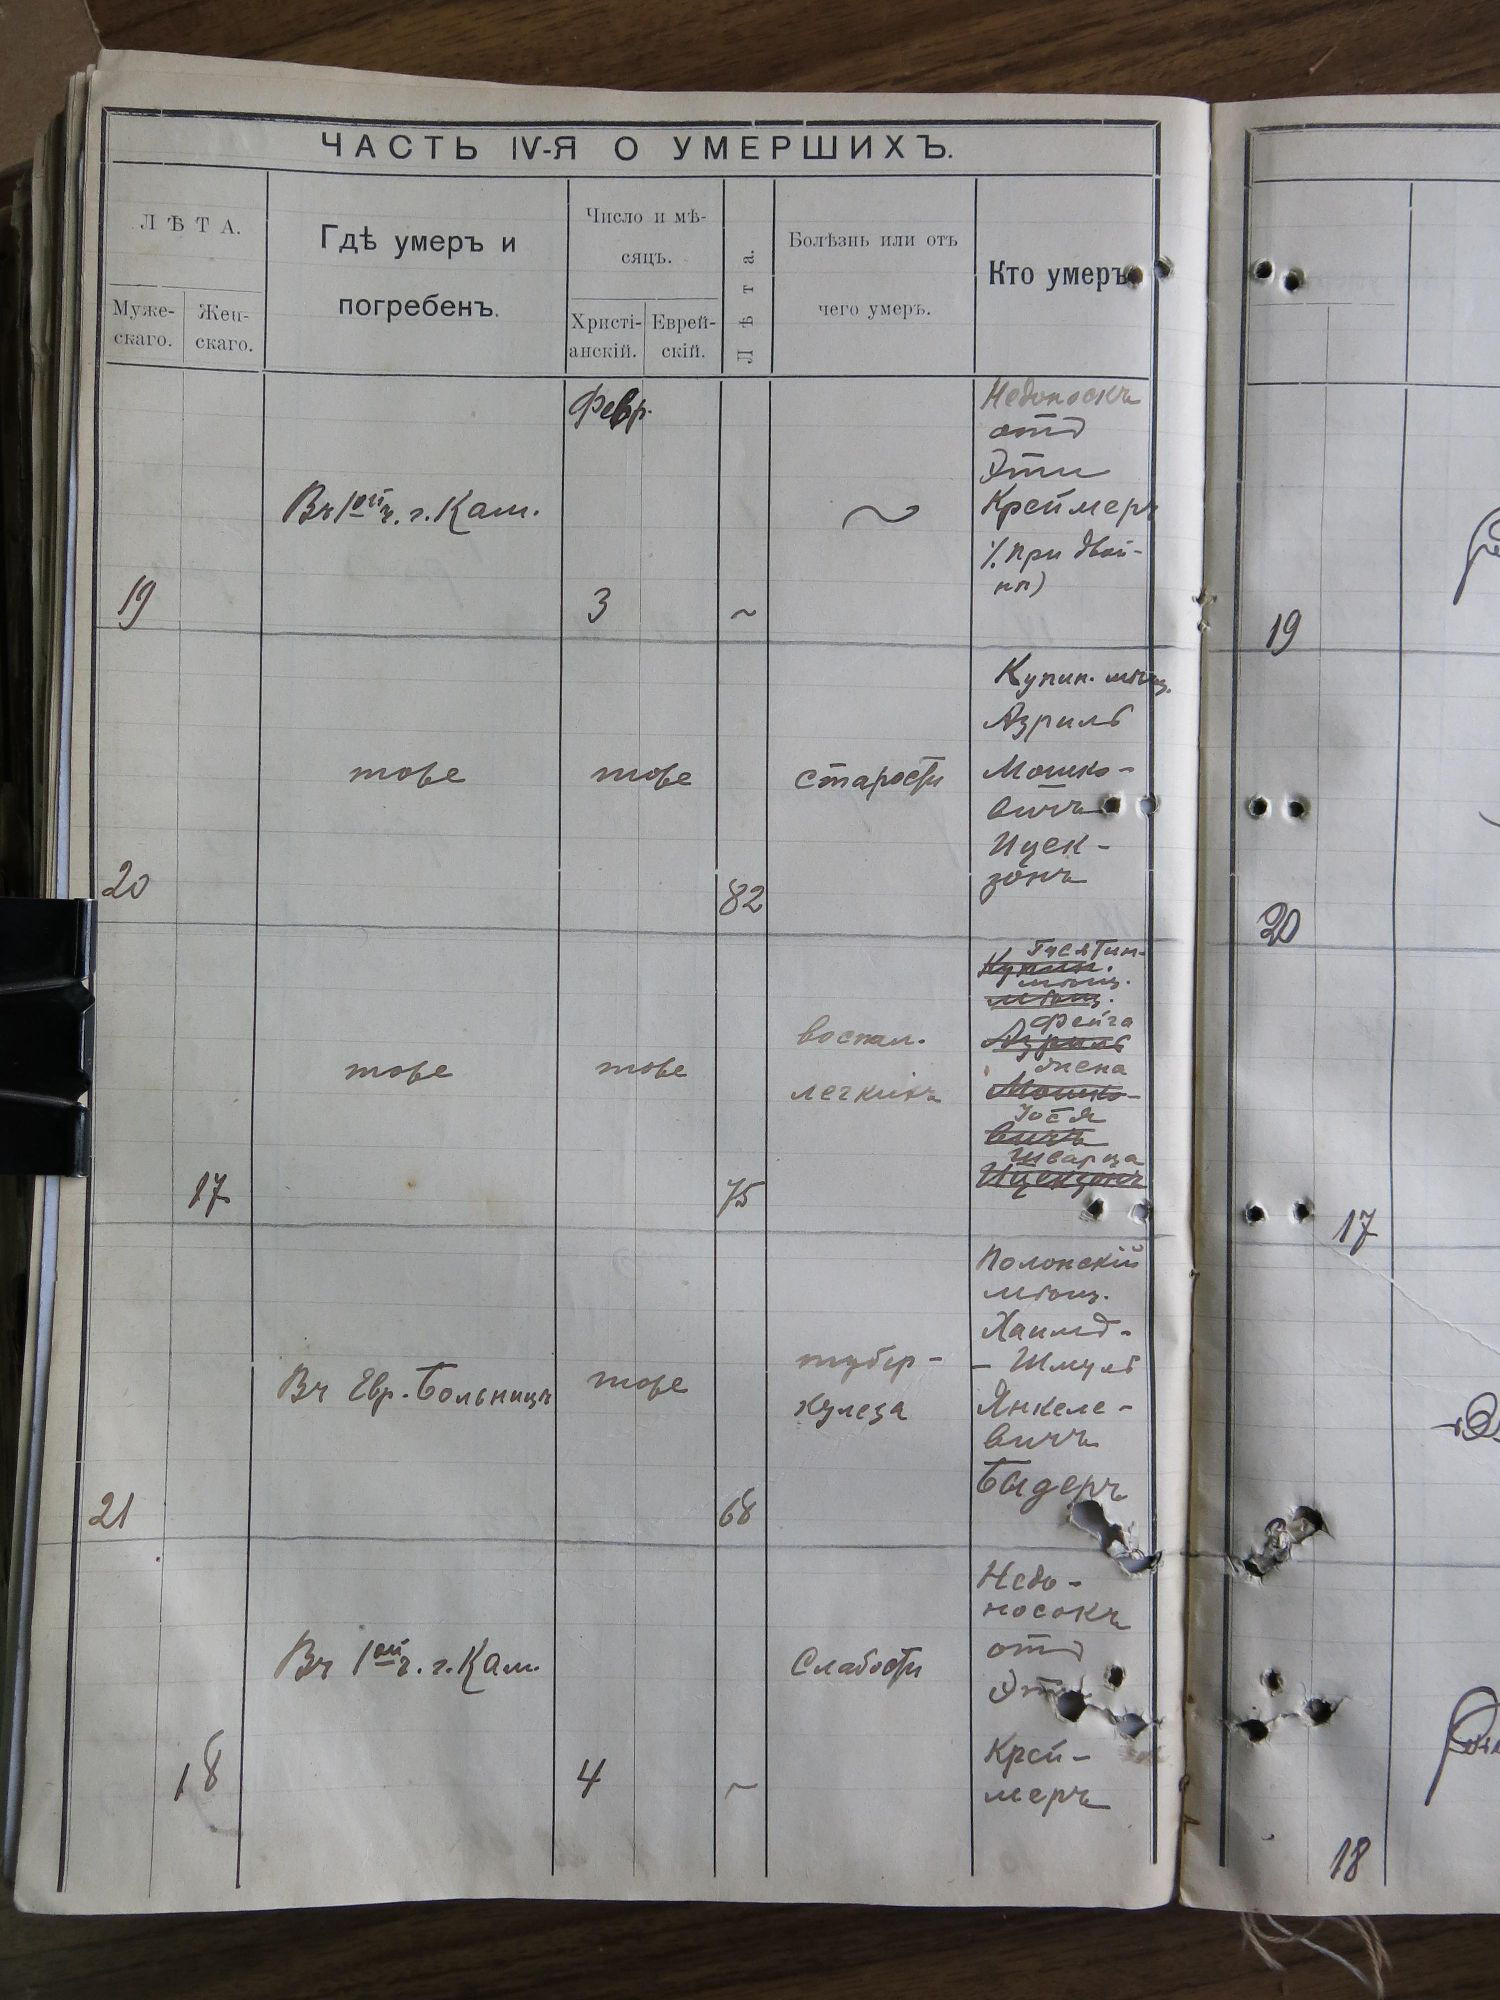 ЧАСТЬ IV-Я О УМЕРШИХЪ.
ЛѢТА.
Муже-
скаго.
Жен-
скаго.
Гдѣ умеръ и
погребенъ.
Число и мѣ-
сяцъ.
Христі-
анскій.
Еврей-
скій.
Лѣта.
Болѣзнь или отъ
чего умеръ.
Кто умеръ
19
Въ 1ой ч. г. Кам.
Февр.
3
~
~
Недоноскъ
отъ
Эти
Креймеръ
(при двой-
нѣ)
20
тоже
тоже
82
старости
Купин. мѣщ.
Азриль
Мошко-
вичъ
Ицек-
зонъ
17
тоже
тоже
75
воспал.
легкихъ
Гусятин.
Купин.
мѣщ.
мѣщ.
Фейга
Азриль
жена
Мошко-
Іося
вичъ
Шварца
Ицекзонъ
21
Въ Евр. Больницѣ
тоже
68
тубер-
кулеза
Полонскій
мѣщ.
Хаимъ-
- Шмуль
Янкеле-
вичъ
Бидеръ
18
Въ 1ой ч. г. Кам.
4
~
Слабости
Недо-
носокъ
отъ
Эти
Крей-
меръ
19
20
17
18